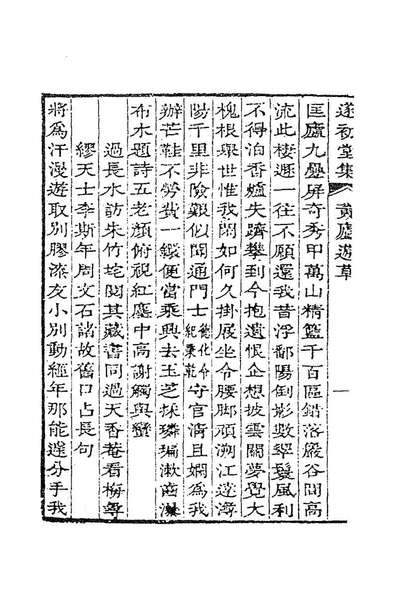 遂初堂集 黄廬遊草 一
匡廬九疊屏奇秀甲萬山精籃千百區錯落巖谷間高
流此棲遯一往不願還我昔浮鄱陽倒影數翠鬟風利
不得泊香爐失躋攀到今抱遺恨企想披雲關夢覺大
槐根舉世惟我閒如何久掛展坐令腰脚頑溯江達潯
陽千里非險艱似聞通門士德化令紀棄乾守官清且嫻爲我
辦芒鞋不勞費一鍰便當乘興去玉芝採璘㻞漱齒瀑
布水題詩五老顏俯視紅塵中高謝觸與蠻
過長水訪朱竹垞閱其藏書同過天香菴看梅尋
繆天士李斯年周文石諸故舊口占長句
將爲汗漫遊取別膠漆友小別動經年那能遂分手我